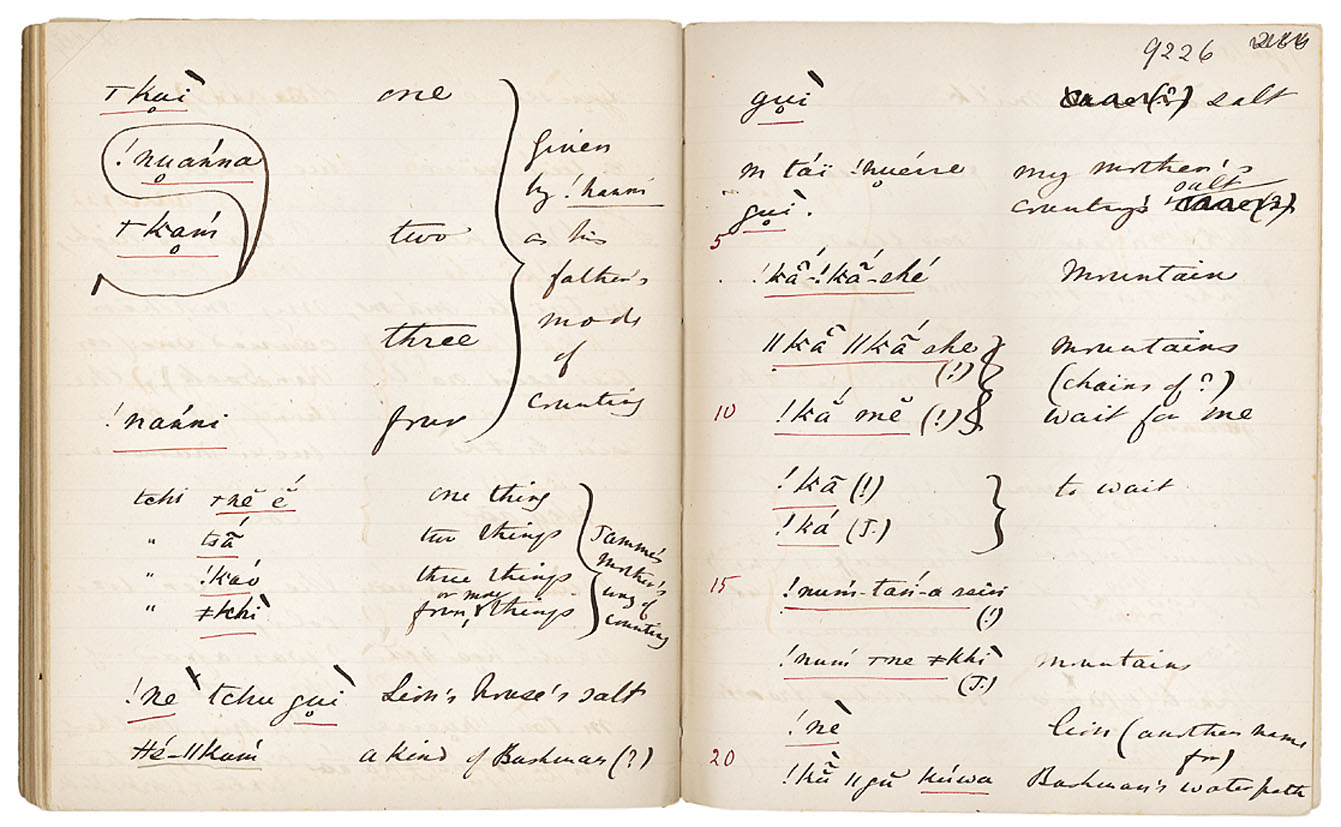 ꞱkuÌ€ one
!nuánna
Ʇkam´ two
three
!nánni four
Given
by !hanni
as his
father's
mode
of
counting
tchi Ʇnĕ ĕ´ one thing
" tsá̃ two things
" !káo three things
" ≠khì four or more things
Jamme's
mother's
way of
counting
!nè tchu gụì Lion's house's salt
Hé-ǁkum´ a kind of Bushman (?)
9226
gụì (?) salt
m táï !nụérre my mother's
gụì. country's salt
5
!kã́-!kã́-shé Mountain
ǁkã́ ǁkã́ she (!) mountains
(chains of?)
10 !ká̃ mĕ (!) wait for me
!kã (!) to wait
!ká (J.)
15 !num´-tan´-a (!)
!num´ Ʇne ≠khì (J.) mountains
!nè lion (another name
for)
20 !kũ̀ ǁgŭ kúwa Bushman's water path